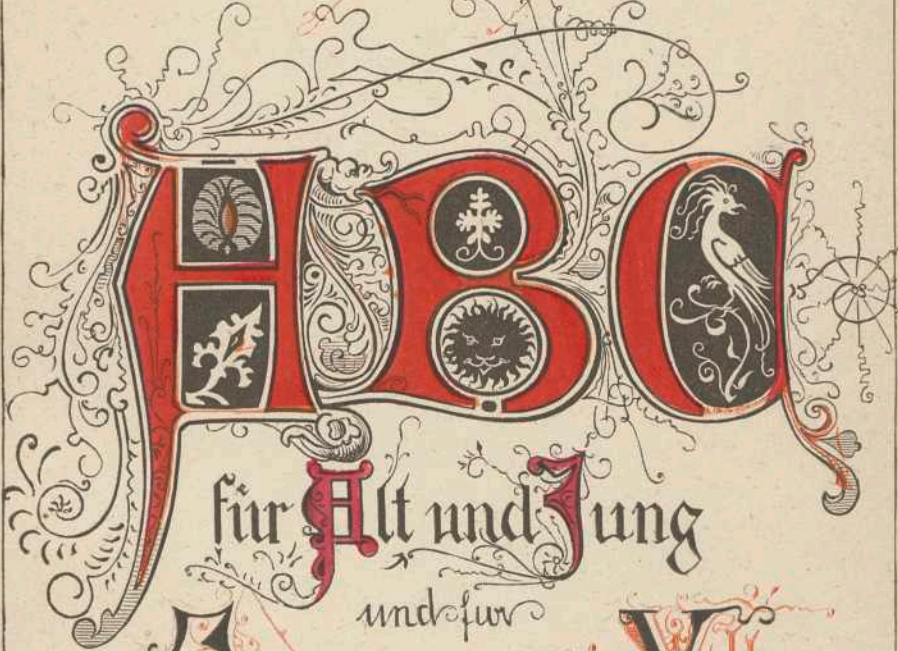 ABC
für Alt und Jung
und für